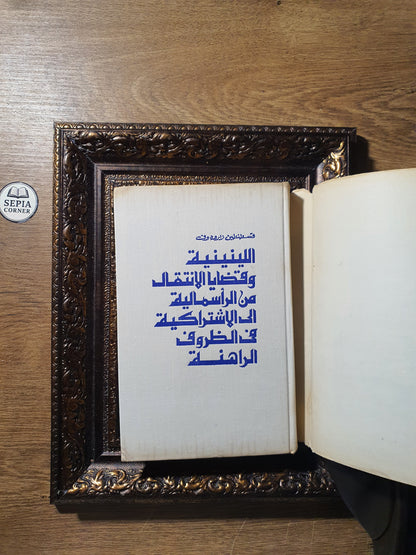 قسطنطين زارودوف
اللينينية
وقضايا الانتقال
من الرأسمالية
الى الاشتراكية
في الظروف
الراهنة
SEPIA
CORNER